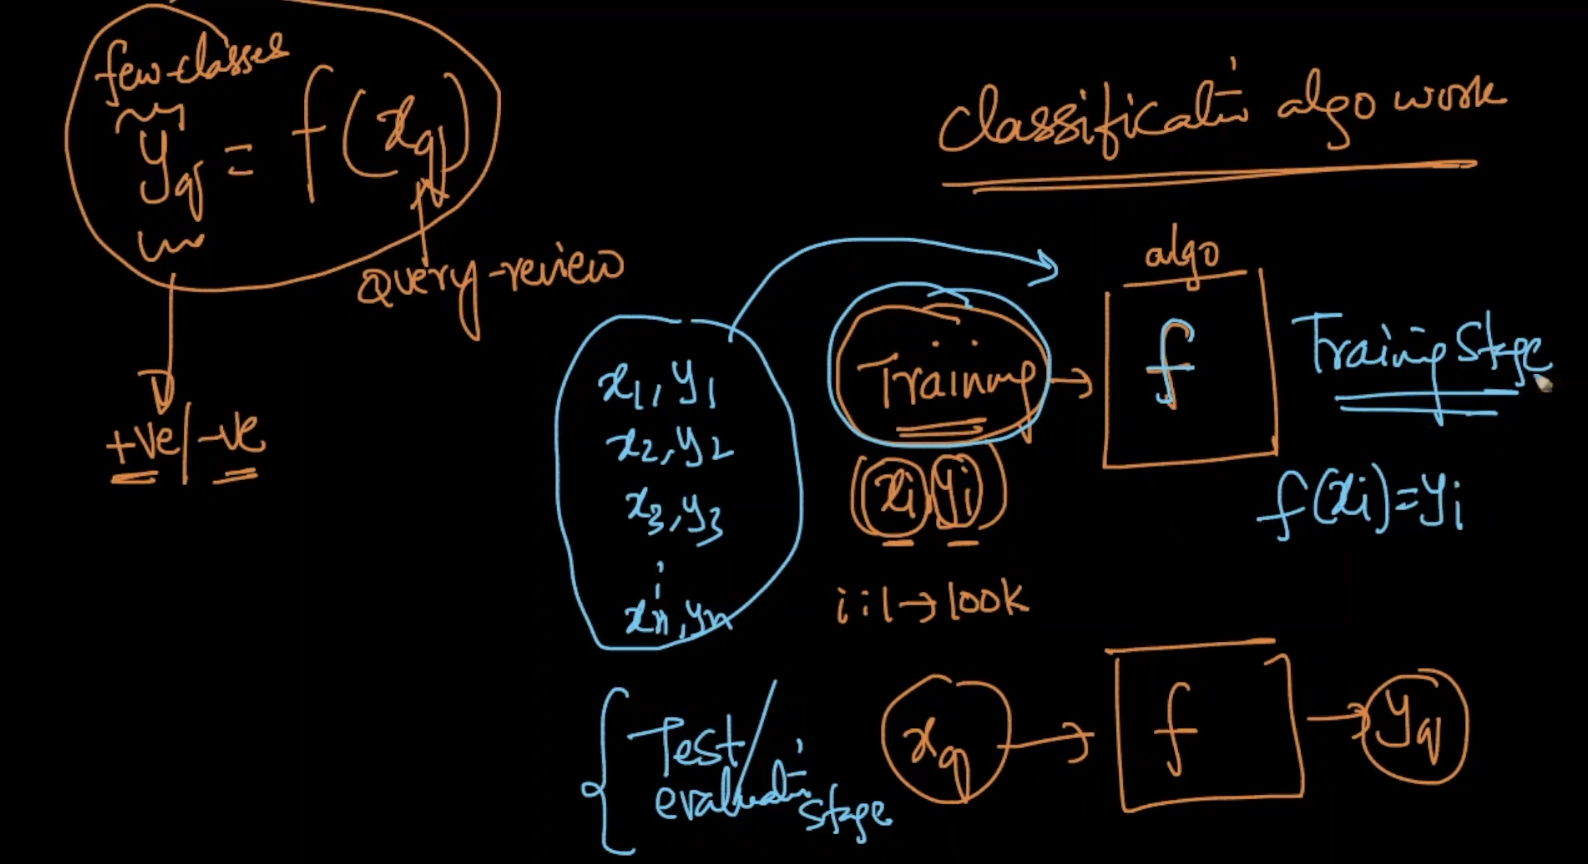 few-classes
yq = f(xq)
Query-review
+ve/-ve
Classificatin algo work
algo
x1, y1
x2, y2
x3, y3
xn, yn
Training
f
Training Stage
(xi, yi)
f(xi)=yi
i:1→100k
Test/
evaluatin
stage
xq
f
yq